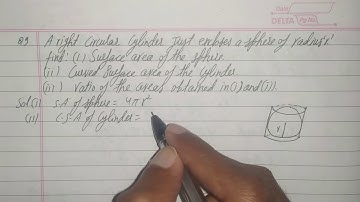 DELTA
Q9 A right Circular Cylinder just encloses a sphere of radius 'r'
find: (i) Surface area of the sphere
(ii) Curved Surface area of the Cylinder
(iii) ratio of the areas obtained in (i) and (ii).
Sol (i) S.A of sphere = 4πr²
(ii) C.S.A of Cylinder =
r